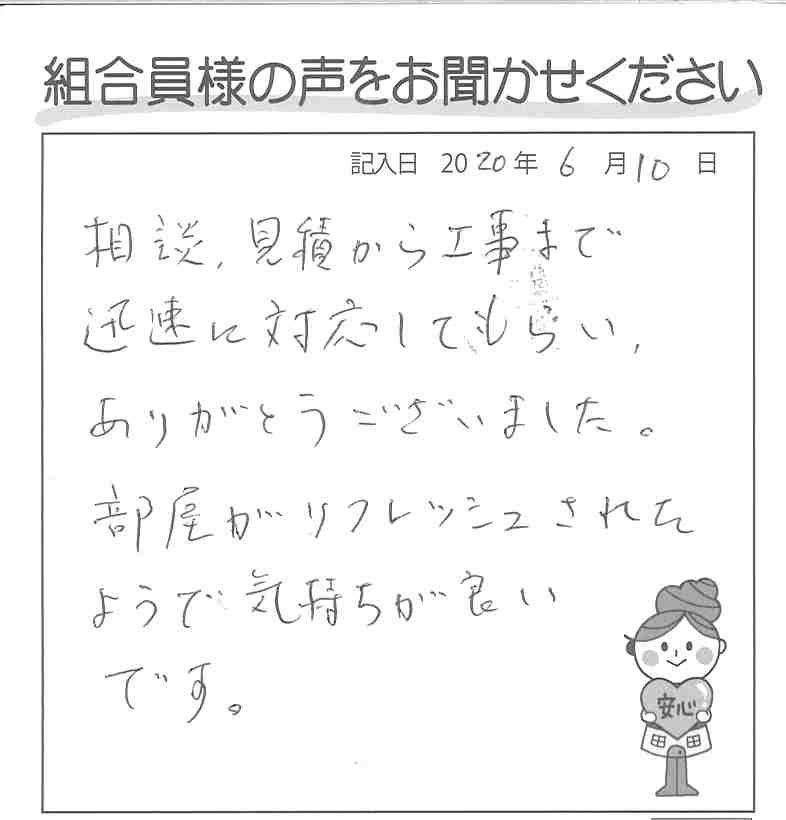 組合員様の声をお聞かせください
記入日 2020年 6月10日
相談、見積から工事まで
迅速に対応してもらい、
ありがとうございました。
部屋がリフレッシュされた
ようで気持ちが良い
です。
安心